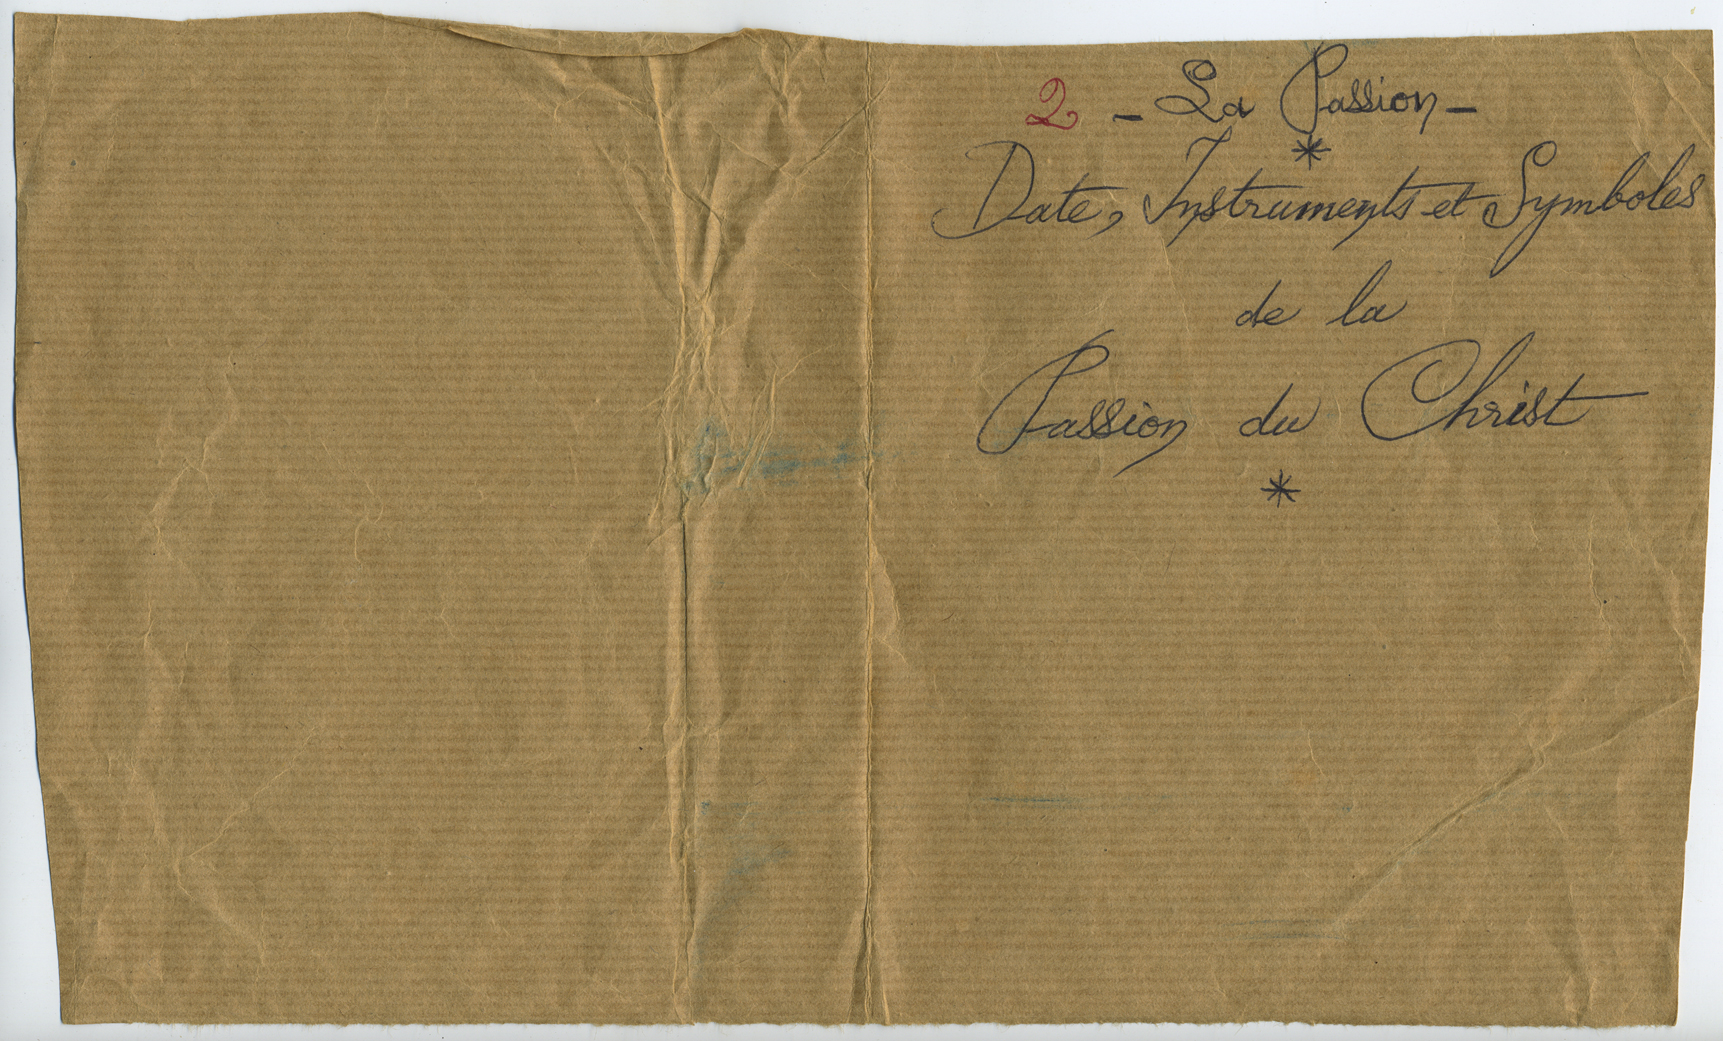 2 - La Passion -
*
Date, Instruments et Symboles
de la
Passion du Christ
*